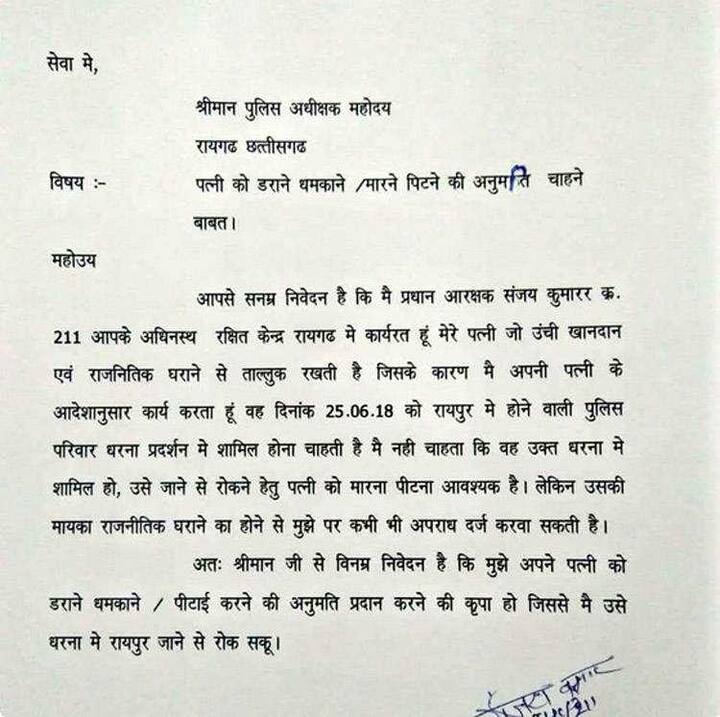 सेवा मे,
श्रीमान पुलिस अधीक्षक महोदय
रायगढ छत्तीसगढ
विषय :- पत्नी को डराने धमकाने /मारने पिटने की अनुमति चाहने
बाबत।
महोउय
आपसे सनम्र निवेदन है कि मै प्रधान आरक्षक संजय कुमारर क्र.
211 आपके अधिनस्थ रक्षित केन्द्र रायगढ मे कार्यरत हूं मेरे पत्नी जो उंची खानदान
एवं राजनितिक घराने से ताल्लुक रखती है जिसके कारण मै अपनी पत्नी के
आदेशानुसार कार्य करता हूं वह दिनांक 25.06.18 को रायपुर मे होने वाली पुलिस
परिवार धरना प्रदर्शन मे शामिल होना चाहती है मै नही चाहता कि वह उक्त धरना मे
शामिल हो, उसे जाने से रोकने हेतु पत्नी को मारना पीटना आवश्यक है। लेकिन उसकी
मायका राजनीतिक घराने का होने से मुझे पर कभी भी अपराध दर्ज करवा सकती है।
अतः श्रीमान जी से विनम्र निवेदन है कि मुझे अपने पत्नी को
डराने धमकाने / पीटाई करने की अनुमति प्रदान करने की कृपा हो जिससे मै उसे
धरना मे रायपुर जाने से रोक सकू।
संजय कुमार